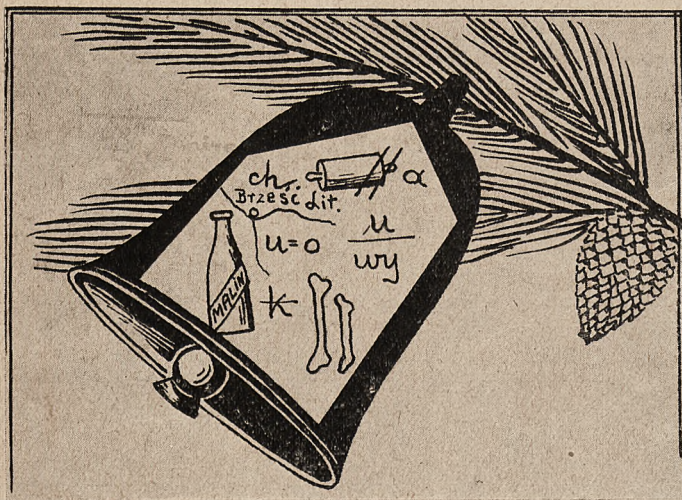 ch.. α
Brześć Lit.
u=o
u
wy
MALIN
k